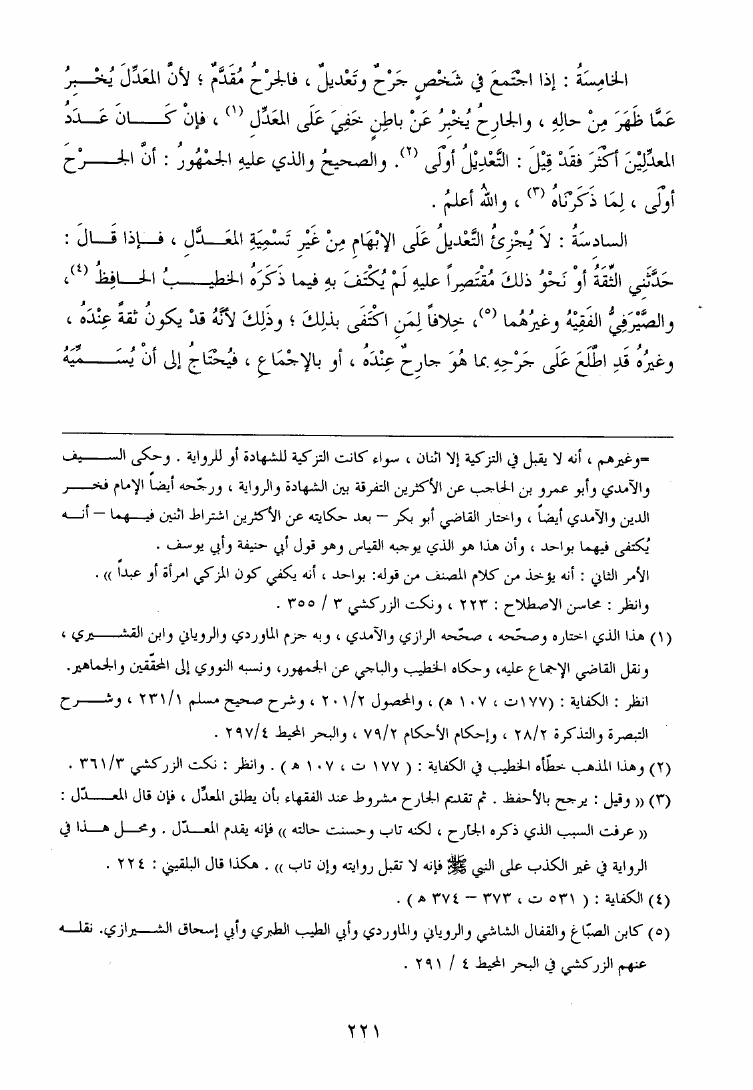 الخامِسَةُ : إذا اجْتَمعَ في شَخْصٍ جَرْحٌ وتَعْديلٌ ، فالجَرْحُ مُقَدَّمٌ ؛ لأنَّ المعَدِّلَ يُخْبِرُ
عَمَّا ظَهَرَ مِنْ حالِهِ ، والجارِحُ يُخْبِرُ عَنْ باطِنٍ خَفِيَ عَلَى المعَدِّلِ (١) ، فإنْ كَانَ عَدَدُ
المعدِّلِيْنَ أكْثَرَ فقَدْ قِيْلَ : التَّعْدِيْلُ أوْلَى (٢). والصحيحُ والذي عليهِ الجمْهُورُ : أنَّ الجرْحَ
أولَى ، لِمَا ذَكَرْنَاهُ (٣) ، واللهُ أعلمُ .
السادسَةُ : لاَ يُجْزِئُ التَّعْديلُ عَلَى الإبْهَامِ مِنْ غَيْرِ تَسْمِيَةِ المعَدَّلِ ، فإذا قَالَ :
حَدَّثَنِي الثِّقَةُ أوْ نَحْوُ ذلكَ مُقْتَصِراً عليهِ لَمْ يُكْتَفَ بهِ فيما ذَكَرَهُ الخَطيبُ الحافِظُ (٤)،
والصَّيْرَفِيُّ الفَقِيْهُ وغيرُهُما (٥)، خِلافاً لِمَنِ اكْتَفَى بذلِكَ ؛ وذَلِكَ لأنَّهُ قدْ يكونُ ثقةً عِنْدَهُ ،
وغيرُهُ قَدِ اطَّلَعَ عَلَى جَرْحِهِ بما هُوَ جارِحٌ عِنْدَهُ ، أو بالإجْماعِ ، فَيُحْتَاجُ إلى أنْ يُسَمِّيَهُ
=وغيرهم ، أنه لا يقبل في التزكية إلا اثنان ، سواء كانت التزكية للشهادة أو للرواية . وحكى السيف
والآمدي وأبو عمرو بن الحاجب عن الأكثرين التفرقة بين الشهادة والرواية ، ورجّحه أيضاً الإمام فخر
الدين والآمدي أيضاً ، واختار القاضي أبو بكر – بعد حكايته عن الأكثرين اشتراط اثنين فيهما – أنه
يُكتفى فيهما بواحد ، وأن هذا هو الذي يوجبه القياس وهو قول أبي حنيفة وأبي يوسف .
الأمر الثاني : أنه يؤخذ من كلام المصنف من قوله: بواحد ، أنه يكفي كون المزكي امرأة أو عبداً )) .
وانظر : محاسن الاصطلاح : ٢٢٣ ، ونكت الزركشي ٣ / ٣٥٥ .
(١) هذا الذي اختاره وصحّحه ، صحّحه الرازي والآمدي ، وبه جزم الماوردي والروياني وابن القشيري ،
ونقل القاضي الإجماع عليه، وحكاه الخطيب والباجي عن الجمهور، ونسبه النووي إلى المحقّقين والجماهير.
انظر : الكفاية : (١٧٧ت ، ١٠٧ ه) ، والمحصول ٢٠١/٢ ، وشرح صحيح مسلم ٢٣١/١ ، وشرح
التبصرة والتذكرة ٢٨/٢ ، وإحكام الأحكام ٧٩/٢ ، والبحر المحيط ٢٩٧/٤ .
(٢) وهذا المذهب خطّأه الخطيب في الكفاية : ( ١٧٧ ت ، ١٠٧ ه ) . وانظر : نكت الزركشي ٣٦١/٣ .
(٣) (( وقيل : يرجح بالأحفظ . ثم تقديم الجارح مشروط عند الفقهاء بأن يطلق المعدِّل ، فإن قال المعدّل :
(( عرفت السبب الذي ذكره الجارح ، لكنه تاب وحسنت حالته )) فإنه يقدم المعدّل . ومحل هذا في
الرواية في غير الكذب على النبي ﷺ فإنه لا تقبل روايته وإن تاب )) . هكذا قال البلقيني : ٢٢٤ .
(٤) الكفاية : ( ٥٣١ ت ، ٣٧٣ – ٣٧٤ ه ) .
(٥) كابن الصبّاغ والقفال الشاشي والروياني والماوردي وأبي الطيب الطبري وأبي إسحاق الشيرازي. نقله
عنهم الزركشي في البحر المحيط ٤ / ٢٩١ .
٢٢١